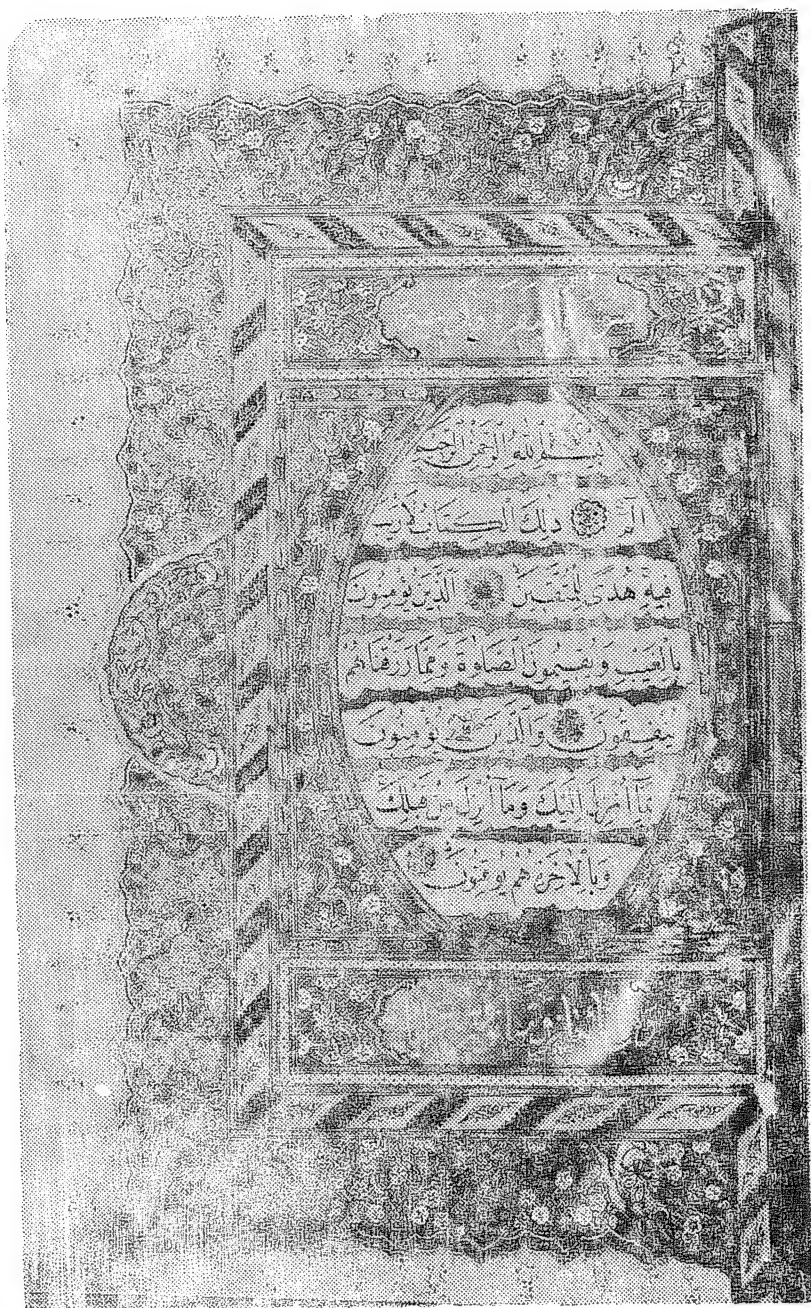 بِسْمِ اللهِ الرَّحْمٰنِ الرَّحِيمِ
الٓمٓ ذٰلِكَ الْكِتَابُ لَا رَيْبَ
فِيهِ هُدًى لِلْمُتَّقِينَ الَّذِينَ يُؤْمِنُونَ
بِالْغَيْبِ وَيُقِيمُونَ الصَّلٰوةَ وَمِمَّا رَزَقْنَاهُمْ
يُنْفِقُونَ وَالَّذِينَ يُؤْمِنُونَ
بِمَٓا أُنْزِلَ إِلَيْكَ وَمَٓا أُنْزِلَ مِنْ قَبْلِكَ
وَبِالْاٰخِرَةِ هُمْ يُوقِنُونَ